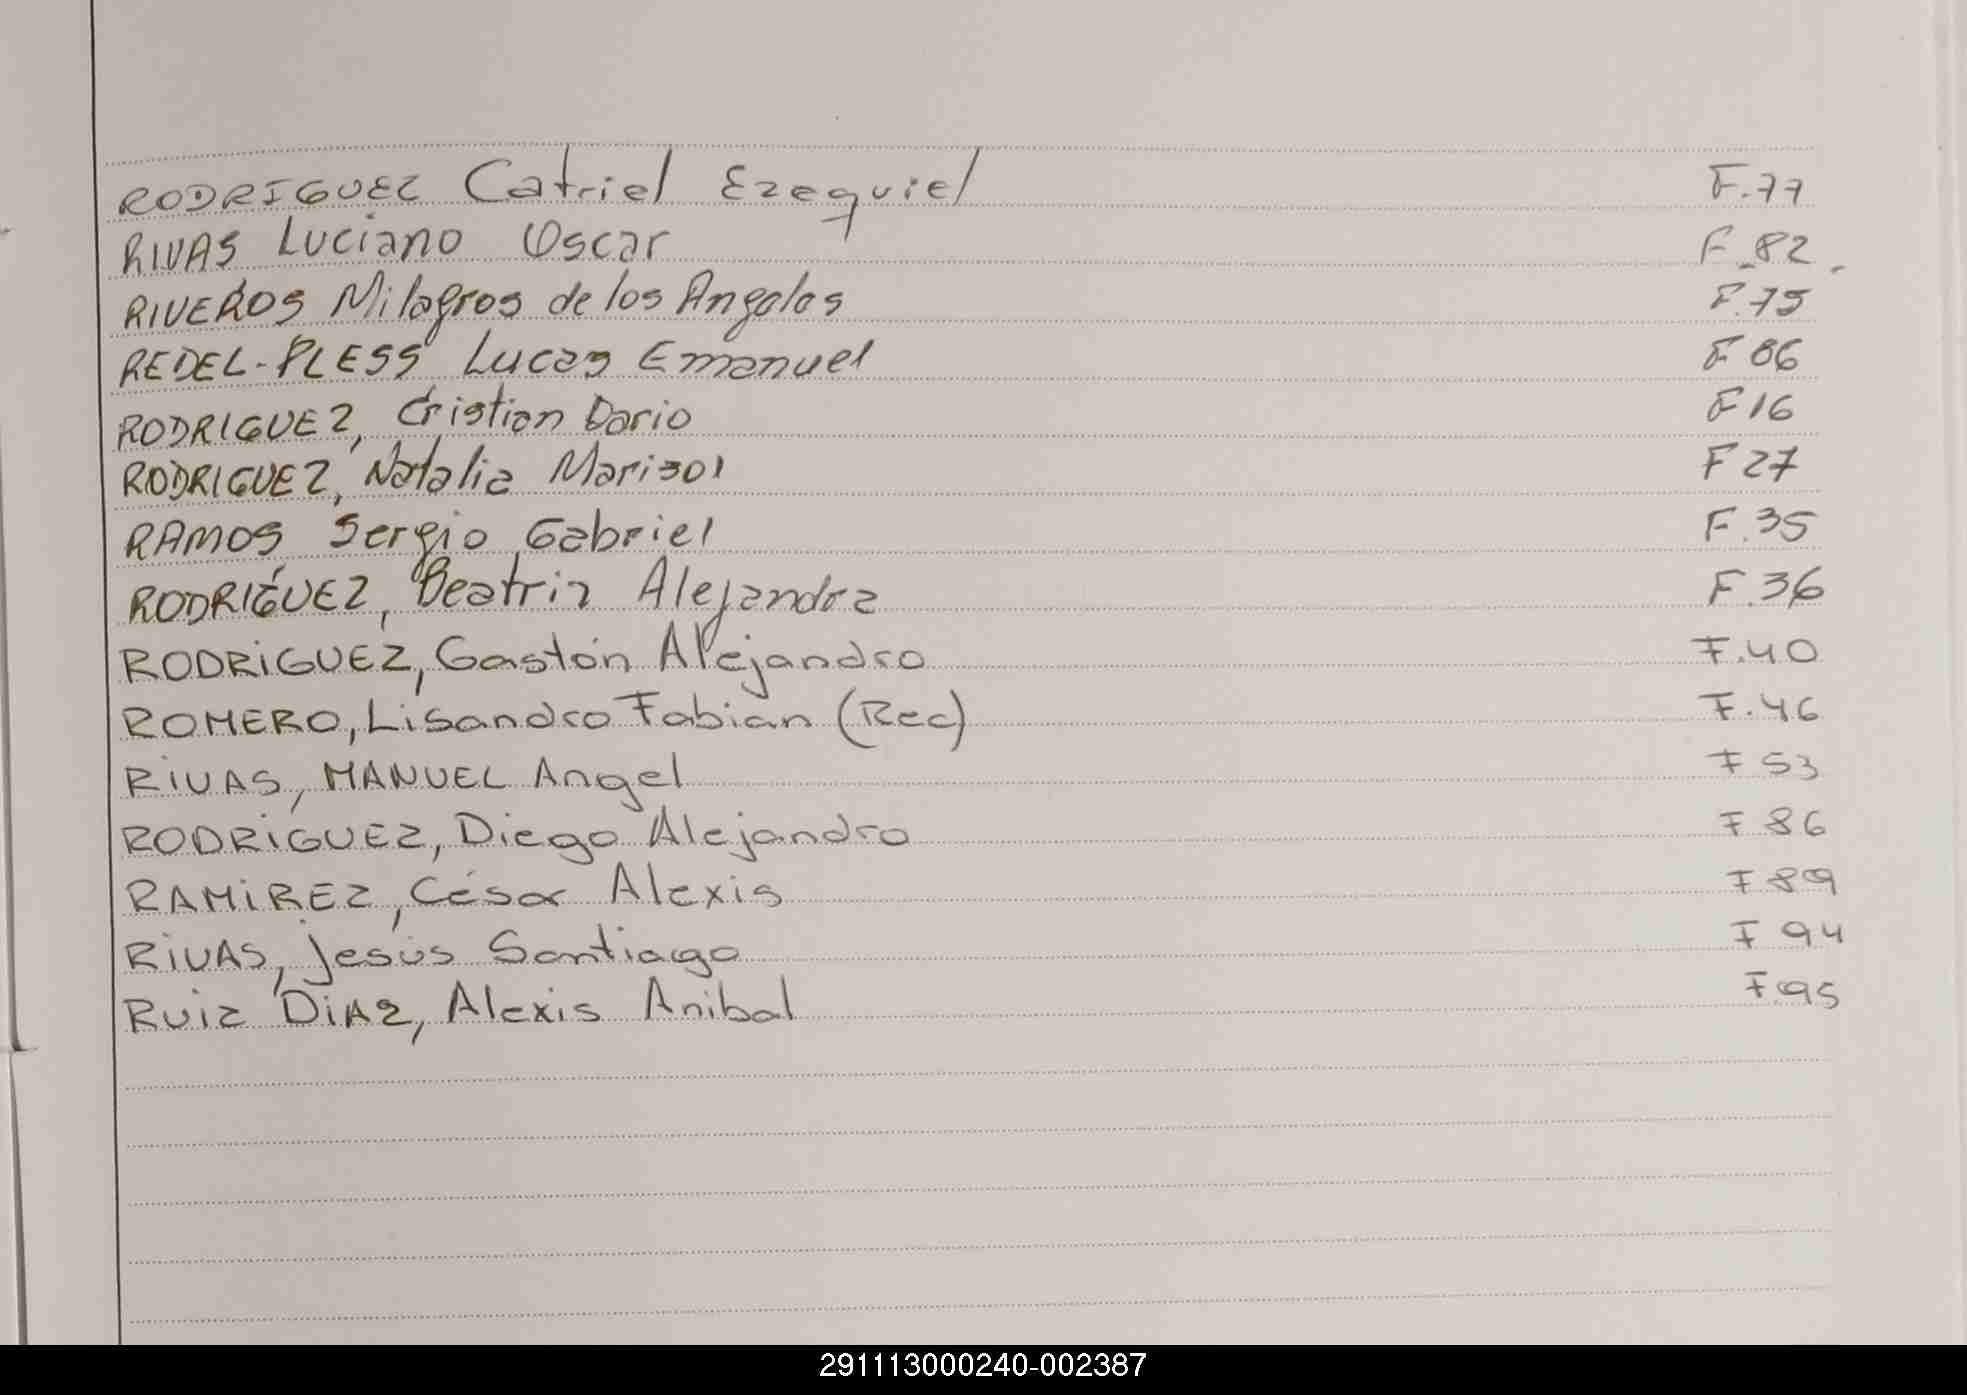 RODRIGUEZ Catriel Ezequiel F.77
RIVAS Luciano Oscar F.82.
RIVEROS Milagros de los Angeles F.75
REDEL-PLESS Lucas Emanuel F 06
RODRIGUEZ, Cristian Dario F 16
RODRIGUEZ, Natalia Marisol F 27
RAMOS Sergio Gabriel F.35
RODRIGUEZ, Beatriz Alejandra F.36
RODRIGUEZ, Gastón Alejandro F.40
ROMERO, Lisandro Fabian (Rec) F.46
RIVAS, MANUEL Angel F 53
RODRIGUEZ, Diego Alejandro F 86
RAMIREZ, César Alexis F 89
RIVAS, Jesús Santiago F 94
RUIZ DIAZ, Alexis Anibal F.95
291113000240-002387